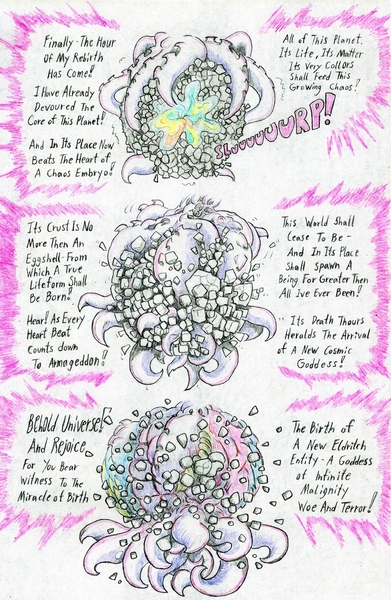 Finally-The Hour
Of My Rebirth
Has Come!
I Have Already
Devoured The
Core of This Planet!
And In Its Place Now
Beats The Heart of
A Chaos Embryo!
All of This Planet.
Its Life, Its Matter
Its Very Collors
Shall Feed This
Growing Chaos!
SLJUUUUUURP!
Its Crust Is No
More Then An
Eggshell-From
Which A True
Lifeform Shall
Be Born!
Hear! As Every
Heart Beat
Counts down
To Armageddon!
This World Shall
Cease To Be-
And In Its Place
Shall Spawn A
Being Far Greater Then
All Ive Ever Been!
Its Death Thours
Heralds The Arrival
of A New Cosmic
Goddess!
Behold Universe!
And Rejoice
For You Bear
Witness To The
Miracle of Birth
The Birth of
A New Eldritch
Entity-A Goddess
of Infinite
Malignity
Woe And Terror!